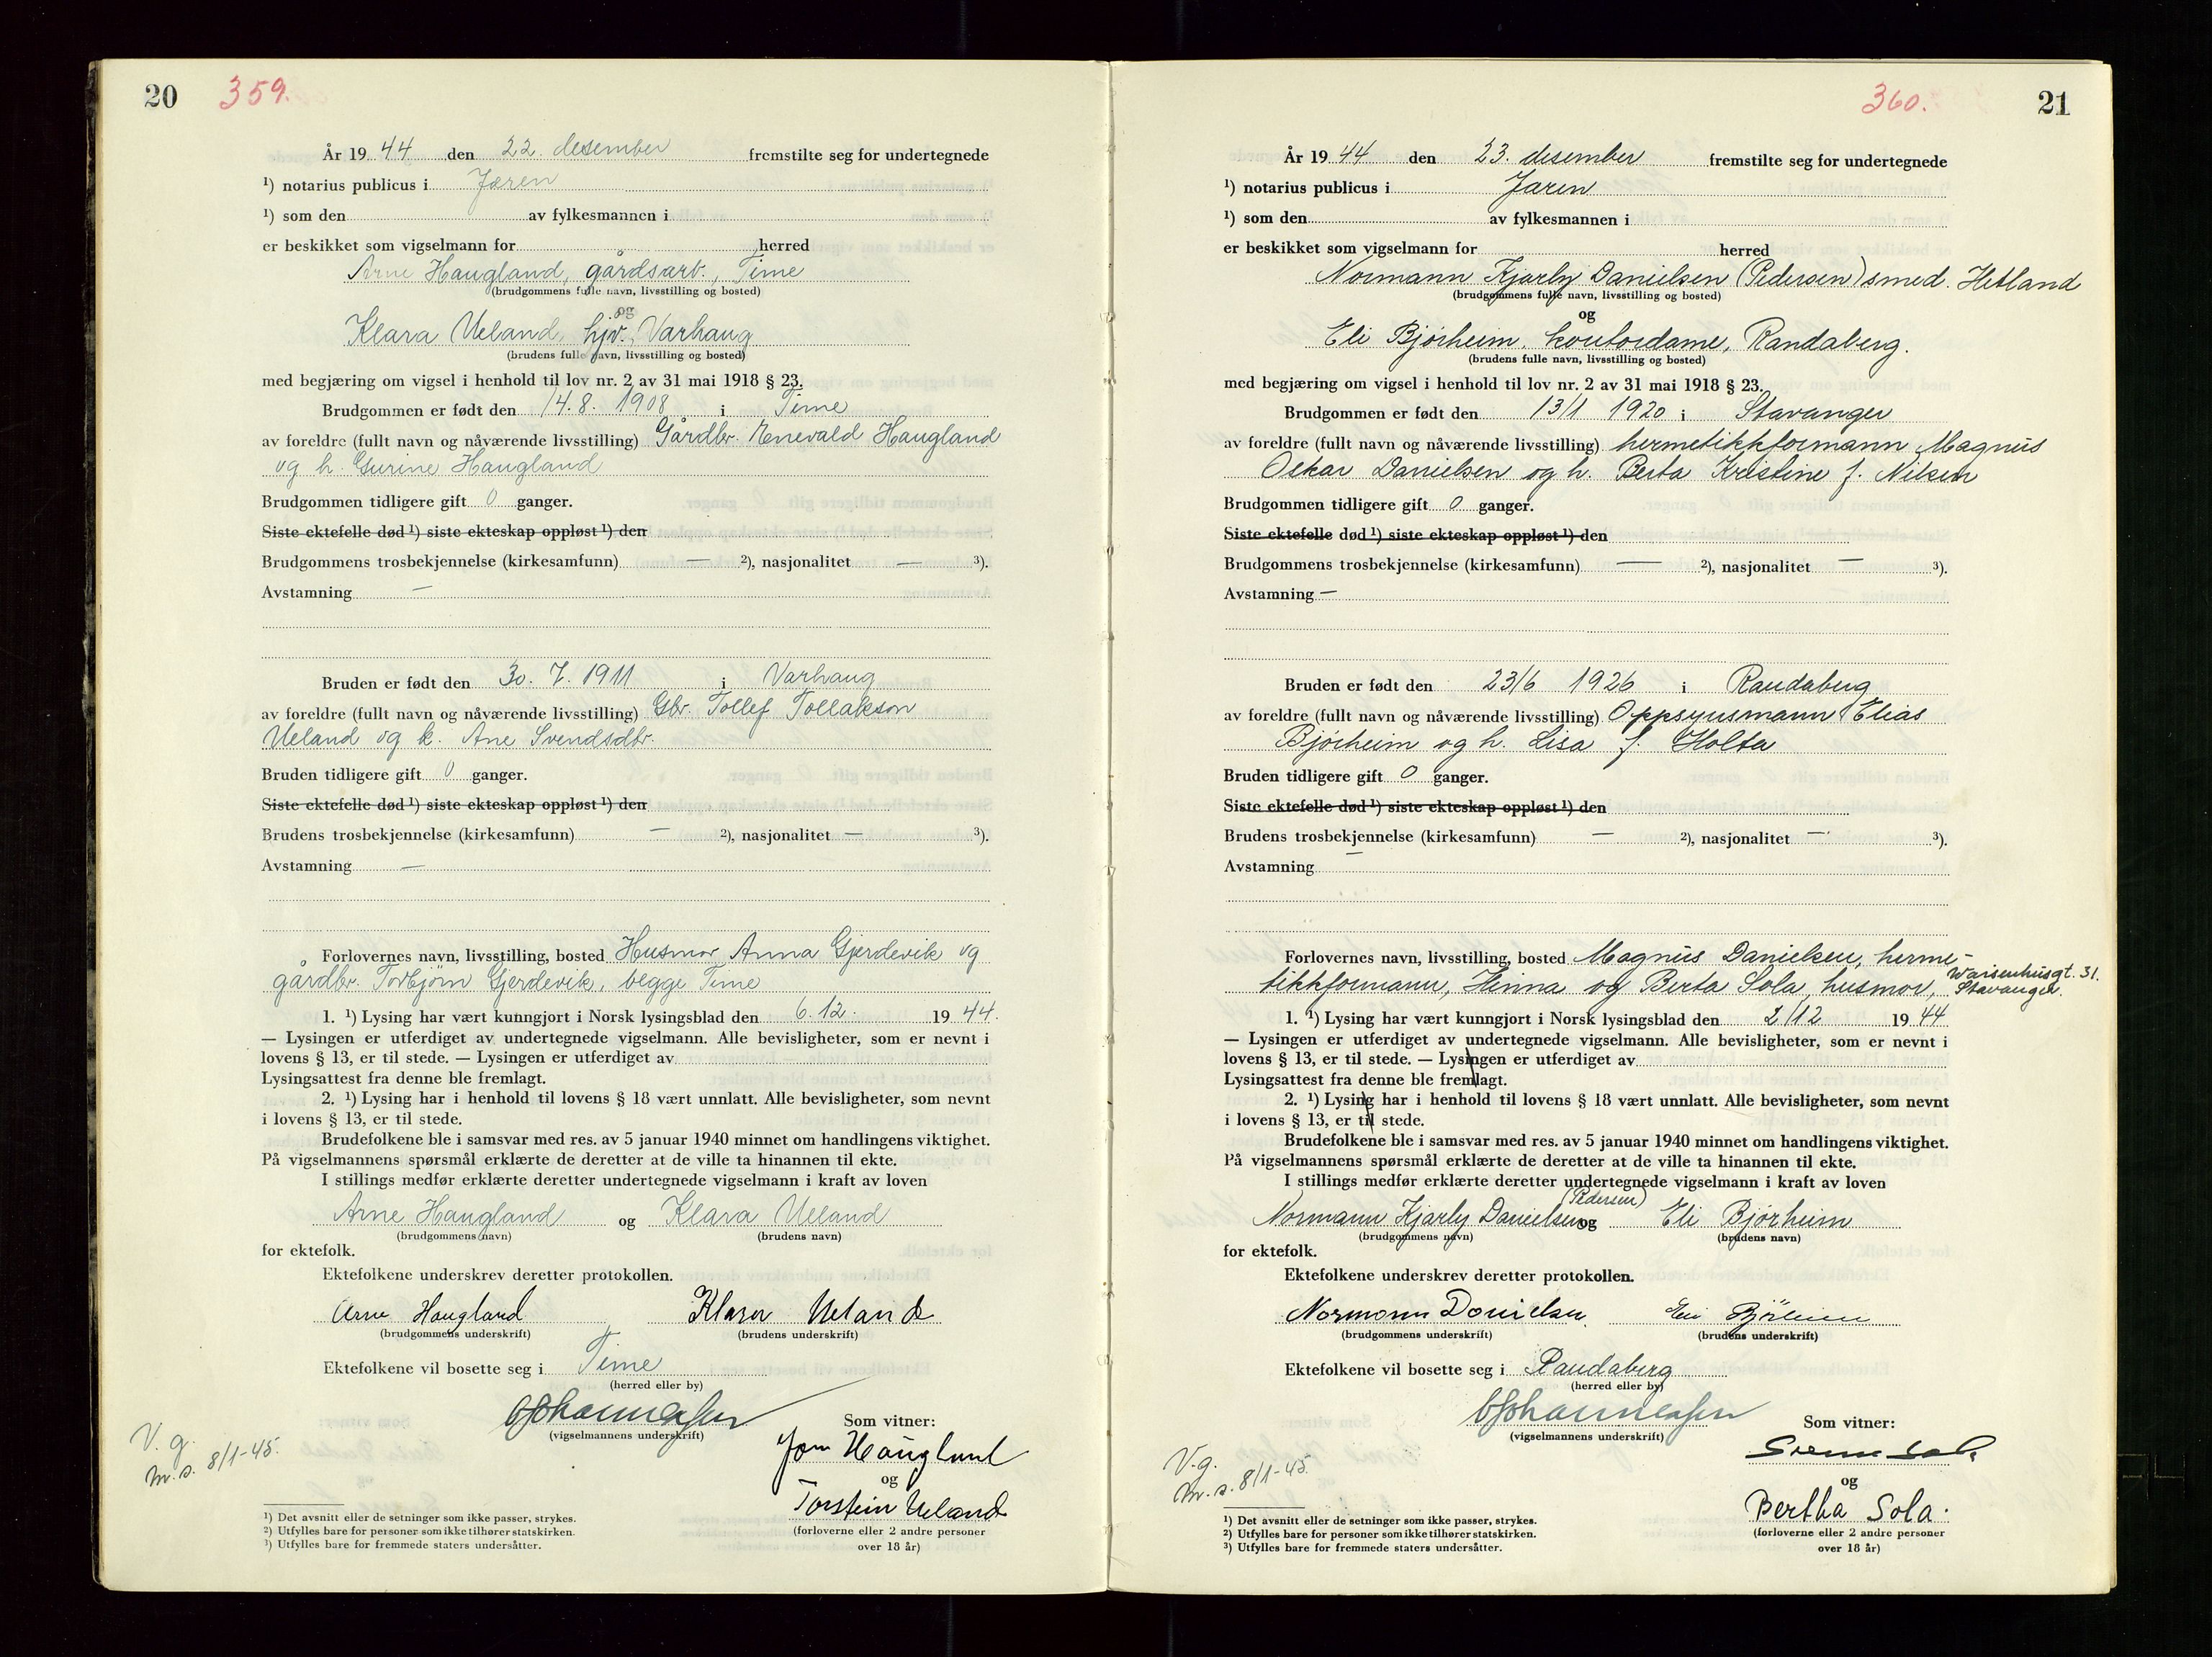 20 359.
År 1944 den 22. desember fremstilte seg for undertegnede
¹) notarius publicus i Jæren
¹) som den av fylkesmannen i
er beskikket som vigselmann for herred
Arne Haugland, gårdsarb., Time
(brudgommens fulle navn, livsstilling og bosted)
og
Klara Ueland, hjv. Varhaug
(brudens fulle navn, livsstilling og bosted)
med begjæring om vigsel i henhold til lov nr. 2 av 31 mai 1918 § 23.
Brudgommen er født den 14.8. 1908 i Time
av foreldre (fullt navn og nåværende livsstilling) Gårdbr. Enevald Haugland
og h. Gurine Haugland
Brudgommen tidligere gift 0 ganger.
Siste ektefelle død ¹) siste ekteskap oppløst ¹) den
Brudgommens trosbekjennelse (kirkesamfunn) — ²), nasjonalitet — ³).
Avstamning —
Bruden er født den 30. 7. 1911 i Varhaug
av foreldre (fullt navn og nåværende livsstilling) Gbr. Tollef Tollakson
Ueland og k. Ane Svendsdtr.
Bruden tidligere gift 0 ganger.
Siste ektefelle død ¹) siste ekteskap oppløst ¹) den
Brudens trosbekjennelse (kirkesamfunn) — ²), nasjonalitet — ³).
Avstamning —
Forlovernes navn, livsstilling, bosted Husmor Anna Gjerdevik og
gårdbr. Torbjørn Gjerdevik, begge Time
1. ¹) Lysing har vært kunngjort i Norsk lysingsblad den 6.12. 1944.
— Lysingen er utferdiget av undertegnede vigselmann. Alle bevisligheter, som er nevnt i
lovens § 13, er til stede. — Lysingen er utferdiget av
Lysingsattest fra denne ble fremlagt.
2. ¹) Lysing har i henhold til lovens § 18 vært unnlatt. Alle bevisligheter, som nevnt
i lovens § 13, er til stede.
Brudefolkene ble i samsvar med res. av 5 januar 1940 minnet om handlingens viktighet.
På vigselmannens spørsmål erklærte de deretter at de ville ta hinannen til ekte.
I stillings medfør erklærte deretter undertegnede vigselmann i kraft av loven
Arne Haugland og Klara Ueland
(brudgommens navn) (brudens navn)
for ektefolk.
Ektefolkene underskrev deretter protokollen.
Arne Haugland Klara Ueland
(brudgommens underskrift) (brudens underskrift)
Ektefolkene vil bosette seg i Time
(herred eller by)
(vigselmannens underskrift)
Som vitner:
Haugland
og
Torstein Ueland
(forloverne eller 2 andre personer
over 18 år)
V. g.
m. s. 8/1-45.
¹) Det avsnitt eller de setninger som ikke passer, strykes.
²) Utfylles bare for personer som ikke tilhører statskirken.
³) Utfylles bare for fremmede staters undersåtter.
360. 21
År 1944 den 23. desember fremstilte seg for undertegnede
¹) notarius publicus i Jæren
¹) som den av fylkesmannen i
er beskikket som vigselmann for herred
Normann Kjarly Danielsen (Pedersen) smed. Hetland
(brudgommens fulle navn, livsstilling og bosted)
og
Eli Bjørheim, kontordame, Randaberg.
(brudens fulle navn, livsstilling og bosted)
med begjæring om vigsel i henhold til lov nr. 2 av 31 mai 1918 § 23.
Brudgommen er født den 13/1 1920 i Stavanger
av foreldre (fullt navn og nåværende livsstilling) hermetikkformann Magnus
Oskar Danielsen og h. Berta Kristine f. Nilsen
Brudgommen tidligere gift 0 ganger.
Siste ektefelle død ¹) siste ekteskap oppløst ¹) den
Brudgommens trosbekjennelse (kirkesamfunn) — ²), nasjonalitet — ³).
Avstamning —
Bruden er født den 23/6 1926 i Randaberg
av foreldre (fullt navn og nåværende livsstilling) Oppsynsmann Elias
Bjørheim og h. Lisa f. Holta
Bruden tidligere gift 0 ganger.
Siste ektefelle død ¹) siste ekteskap oppløst ¹) den
Brudens trosbekjennelse (kirkesamfunn) — ²), nasjonalitet — ³).
Avstamning —
Forlovernes navn, livsstilling, bosted Magnus Danielsen, herme-
tikkformann, Hinna og Berta Sola, husmor, Waisenhusgt. 31.
Stavanger.
1. ¹) Lysing har vært kunngjort i Norsk lysingsblad den 2/12 1944
— Lysingen er utferdiget av undertegnede vigselmann. Alle bevisligheter, som er nevnt i
lovens § 13, er til stede. — Lysingen er utferdiget av
Lysingsattest fra denne ble fremlagt.
2. ¹) Lysing har i henhold til lovens § 18 vært unnlatt. Alle bevisligheter, som nevnt
i lovens § 13, er til stede.
Brudefolkene ble i samsvar med res. av 5 januar 1940 minnet om handlingens viktighet.
På vigselmannens spørsmål erklærte de deretter at de ville ta hinannen til ekte.
I stillings medfør erklærte deretter undertegnede vigselmann i kraft av loven
(Pedersen)
Normann Kjarly Danielsen og Eli Bjørheim
(brudgommens navn) (brudens navn)
for ektefolk.
Ektefolkene underskrev deretter protokollen.
Normann Danielsen Eli Bjørheim
(brudgommens underskrift) (brudens underskrift)
Ektefolkene vil bosette seg i Randaberg
(herred eller by)
(vigselmannens underskrift)
Som vitner:
og
Bertha Sola.
(forloverne eller 2 andre personer
over 18 år)
V. g.
m. s. 8/1-45.
¹) Det avsnitt eller de setninger som ikke passer, strykes.
²) Utfylles bare for personer som ikke tilhører statskirken.
³) Utfylles bare for fremmede staters undersåtter.